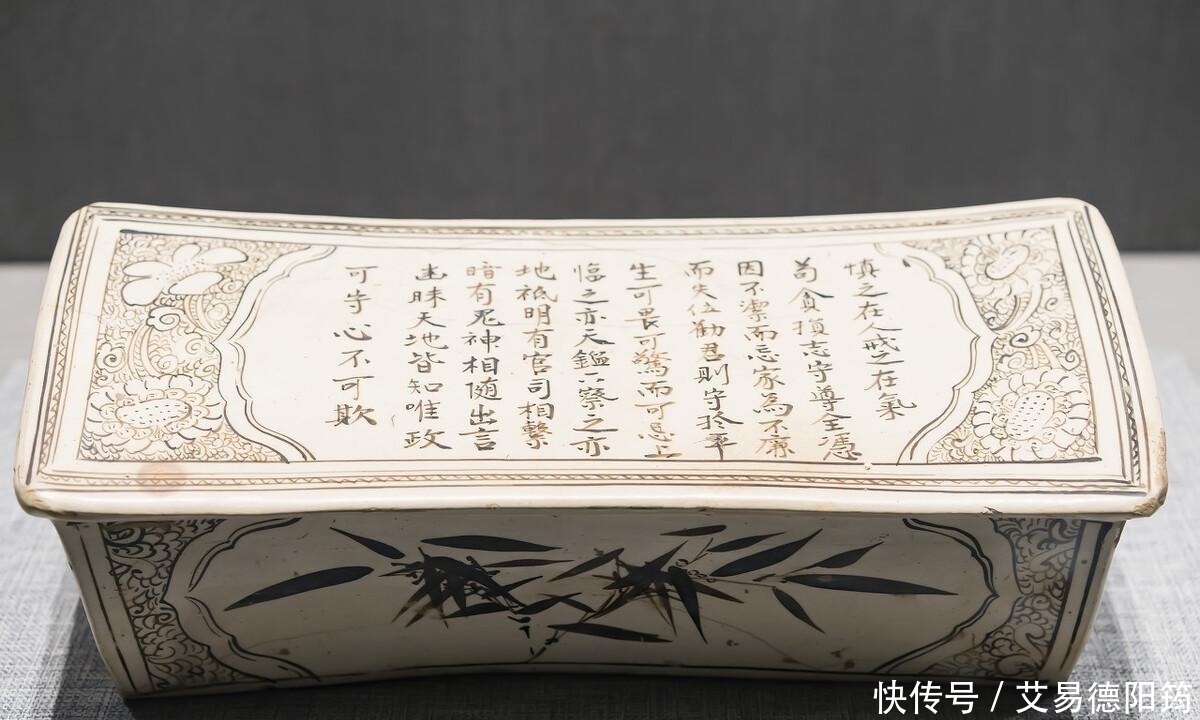 慎之在人戒之在氣
苟貪損志守尊全憑
因不潔而忘家為不廉
而失位勸君則守於平
生可畏可驚而可忌上
臨之亦天鑑下察之亦
地祇明有官司相繫
暗有鬼神相随出言
幽昧天地皆知唯政
可守心不可欺
快传号 / 艾易德阳筠